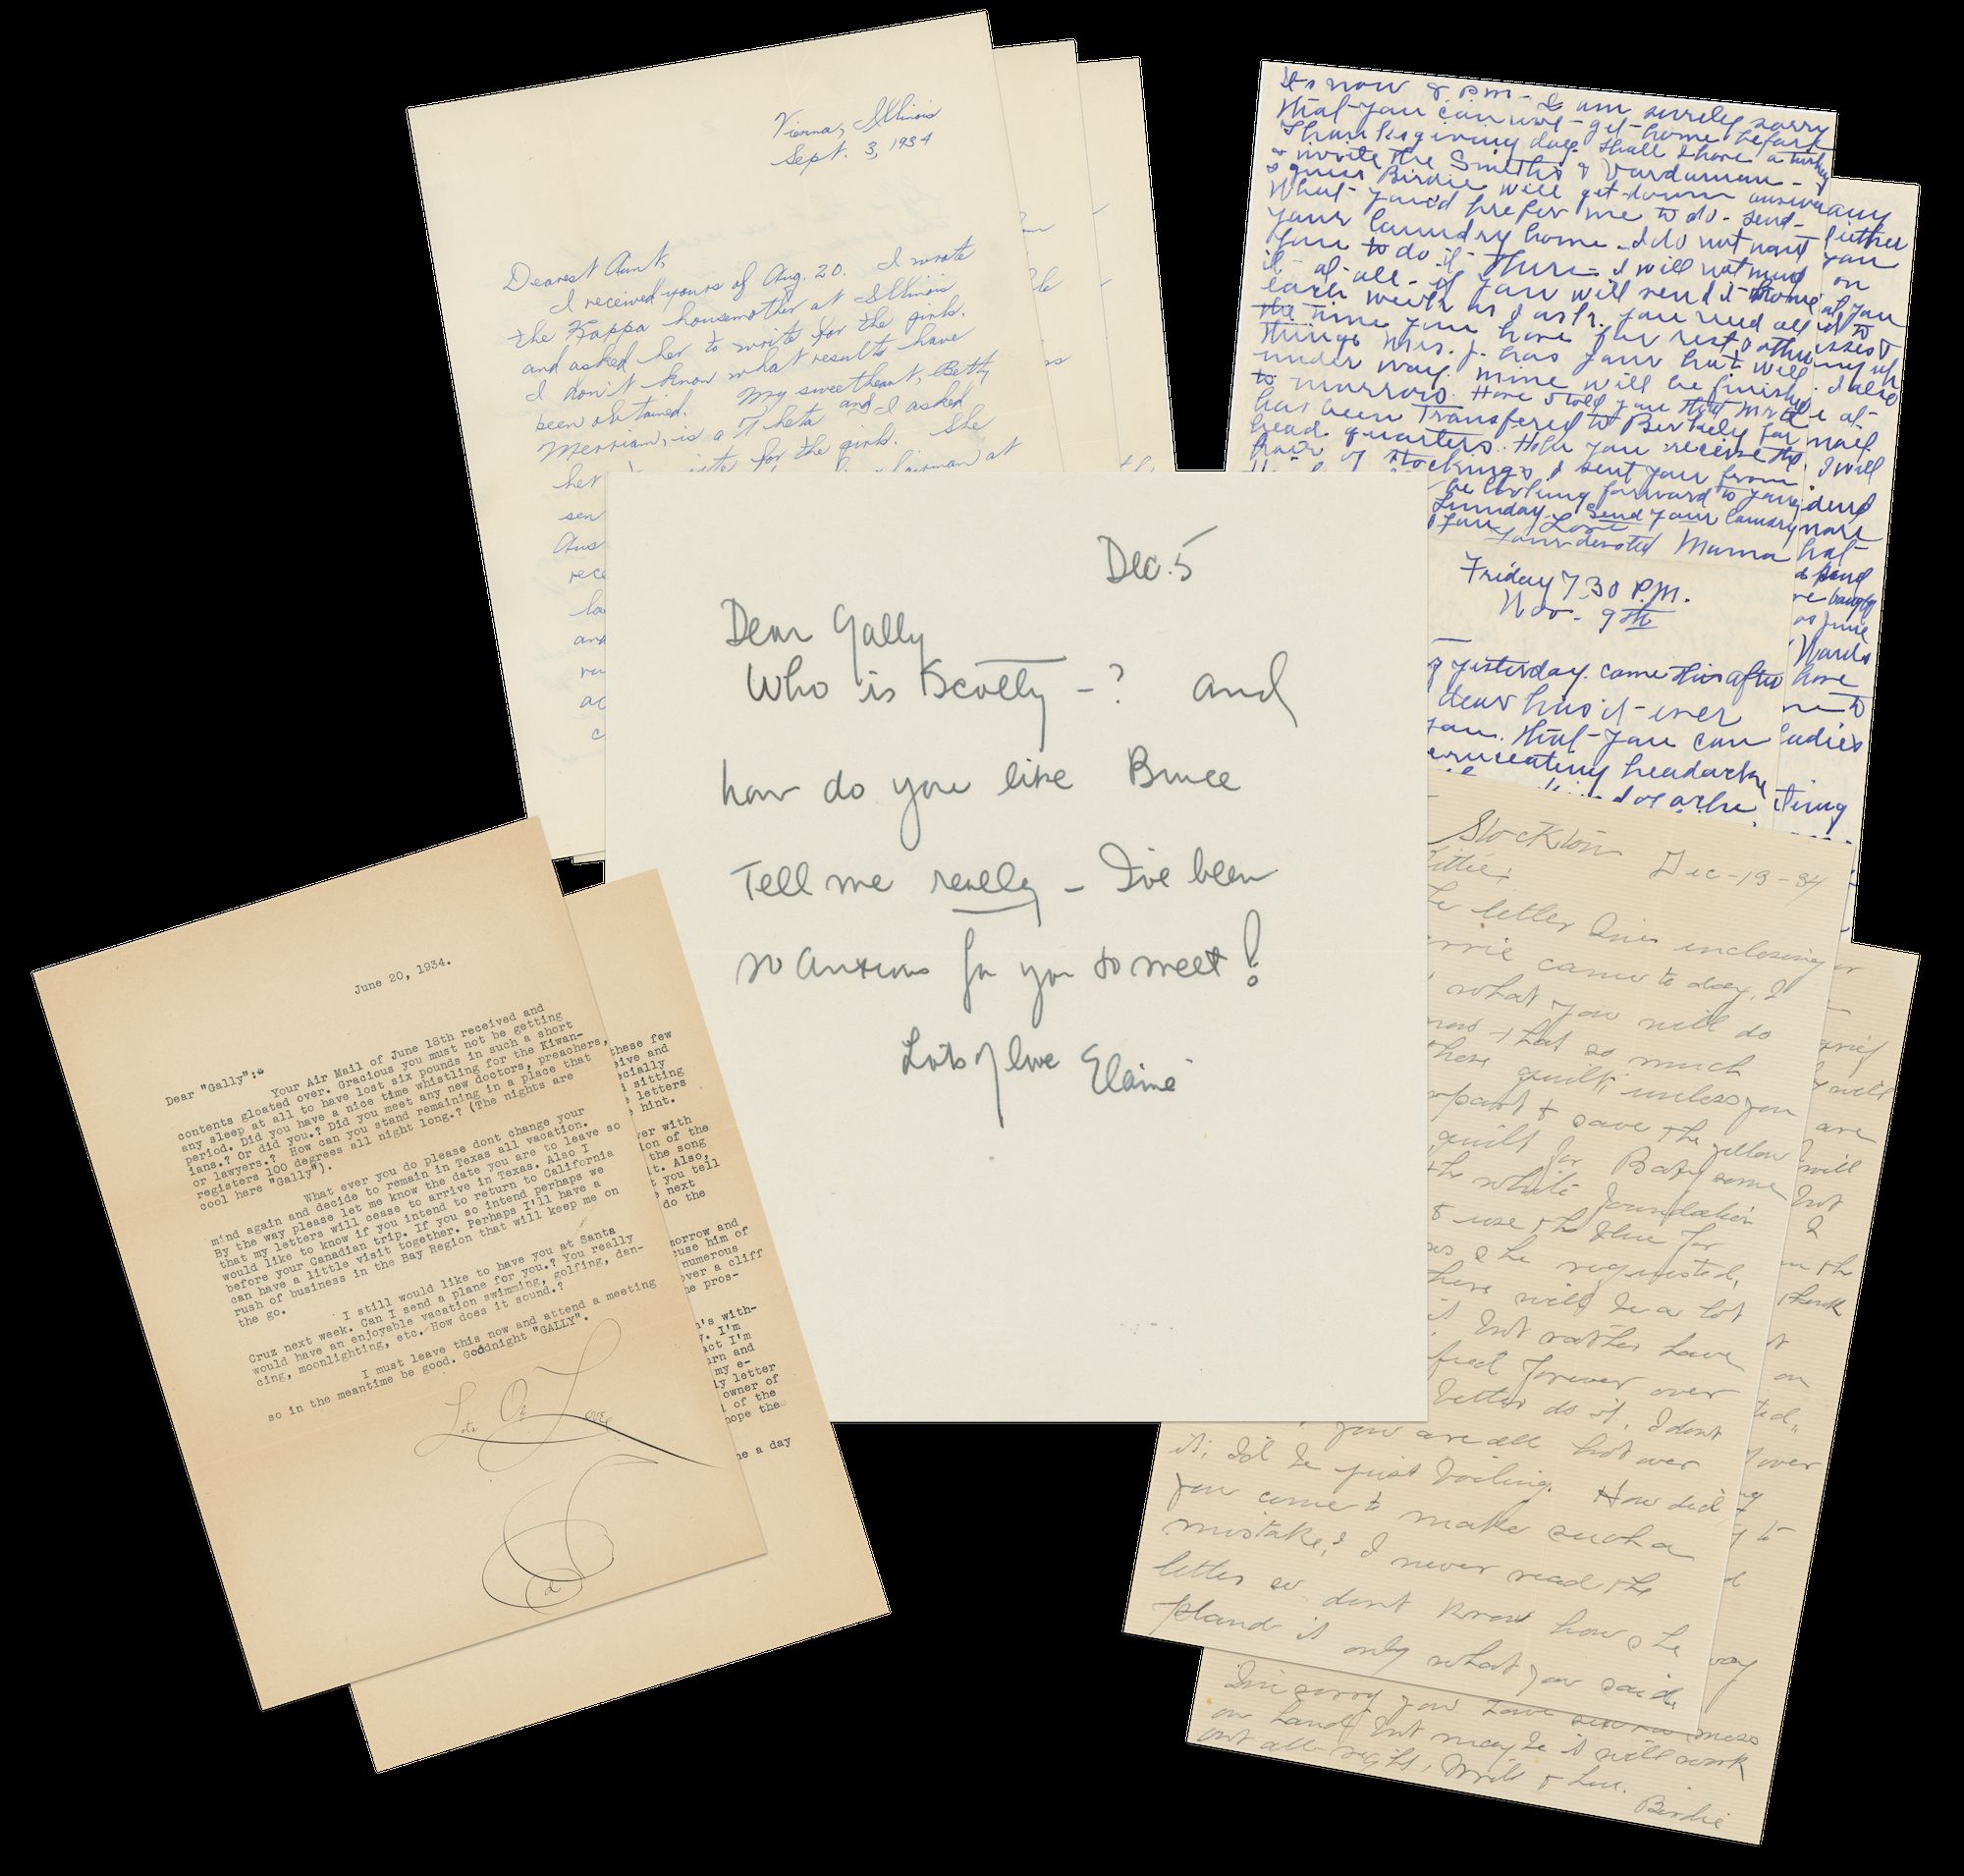 Vienna, Illinois
Sept. 3, 1934
Dearest Aunt,
I received yours of Aug. 20. I wrote
the Kappa housemother at Illinois
and asked her to write for the girls.
I don't know what results have
been obtained. My sweetheart, Betty
Merriam, is a Theta and I asked
her for the girls. She
at
sen
Aus
rece
la
and
ra
ac
c
It's now 8 P.M. - I am surely sorry
that you can not - get - home before
Thanksgiving day. Shall I have a turkey
& invite the Smiths & Vardaman -
I guess Birdie will get down
What you'd prefer me to do - send
your laundry home - I do not want
you to do it - there - I will not mind
it - at - all - if you will send it home
each week as I ask. you need all
the time you have for rest & other
things Mrs. J. has your hat will
under way. mine will be finished
to morrow. Have I told you that
has been Transfered to Berkely for
head quarters. Hope you receive the
pair of stockings I sent you from
be looking forward to your
Sunday send your laundry
Love
Your devoted Mama
Friday 7 30 P.M.
Nov - 9th
yesterday. came this after
dear has it - ever
you. that - you can
headache
any
either
you
on
you
to
I also
at-
mail
I will
more
hat-
have
to
ladies
Dec. 5
Dear Gally
Who is Scotty - ? and
how do you like Bruce
Tell me really - I've been
so anxious for you to meet!
Lots of love Elaine
June 20, 1934.
Dear "Gally":*
Your Air Mail of June 18th received and
contents gloated over. Gracious you must not be getting
any sleep at all to have lost six pounds in such a short
period. Did you have a nice time whistling for the Kiwan-
ians.? Or did you.? Did you meet any new doctors, preachers,
or lawyers.? How can you stand remaining in a place that
registers 100 degrees all night long.? (The nights are
cool here "Gally").
What ever you do please dont change your
mind again and decide to remain in Texas all vacation.
By the way please let me know the date you are to leave so
that my letters will cease to arrive in Texas. Also I
would like to know if you intend to return to California
before your Canadian trip. If you so intend perhaps we
can have a little visit together. Perhaps I'll have a
rush of business in the Bay Region that will keep me on
the go.
I still would like to have you at Santa
Cruz next week. Can I send a plane for you.? You really
would have an enjoyable vacation swimming, golfing, dan-
cing, moonlighting, etc. How does it sound.?
I must leave this now and attend a meeting
so in the meantime be good. Goodnight "GALLY".
Lots Of Love
these few
eive and
ecially
sitting
letters
hint.
ver with
ion of the
the song
it. Also,
you tell
next
do the
morrow and
cuse him of
numerous
over a cliff
he pros-
n's with-
y. I'm
act I'm
urn and
my e-
ly letter
owner of
of the
hope the
me a day
Stockton
Dec-13-34
Kittie;
The letter Ines enclosing
came to day. I
what you will do
now that so much
those quilts, unless you
part & save the yellow
quilt for Baby some
the white foundation
& use the blue for
she requested,
there will be a lot
it but rather have
forever over
better do it. I dont
you are all hot over
it, I'd be just boiling. How did
you come to make such a
mistake? I never read the
letter so dont know how she
pland it only what you said.
I'm sorry you have such a mess
on hand but maybe it will work
out all right. Write & love.
Birdie
are
will
but
I
the
think
on
over
to
way